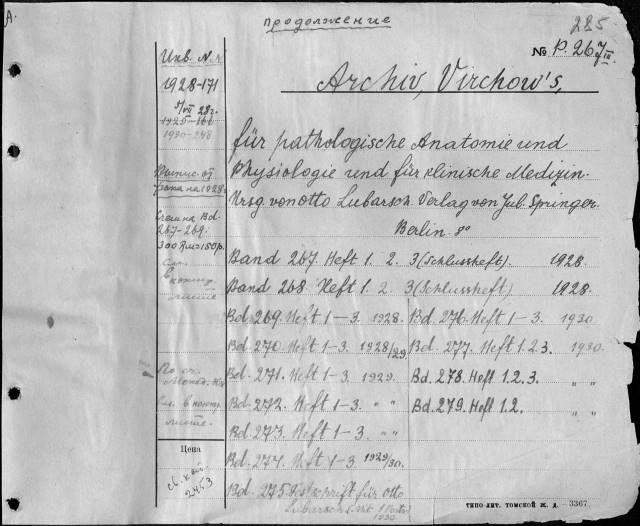 A.
продолжение
285
№ P. 267/III.
Archiv, Virchow's,
für pathologische Anatomie und
Physiologie und für klinische Medizin.
Hrsg. von Otto Lubarsch. Verlag von Jul. Springer.
Berlin. 8°
Band 267 Heft 1. 2. 3 (Schlussheft). 1928.
Band 268. Heft 1. 2 3 (Schlussheft) 1928.
Bd. 269. Heft 1-3. 1928. Bd. 276. Heft 1-3. 1930
Bd. 270. Heft 1-3. 1928/29 Bd. 277. Heft 1.2.3. 1930.
Bd. 271. Heft 1-3. 1929. Bd. 278. Heft 1.2.3. " "
Bd. 272. Heft 1-3. " " Bd. 279. Heft 1.2. " "
Bd. 273. Heft 1-3. " "
Bd. 274. Heft 1-3. 1929/30.
Bd. 275. Festschrift für Otto
Lubarsch 1930
Инв. №
1928-171
5/VII 28г.
1925-166
1930-248
на 1928г.
Счет на Bd.
267-269:
300 Rm=150р.
См.
в
листе
По сч.
См. в контр.
листе.
Цена
2463
ТИПО-ЛИТ. ТОМСКОЙ Ж. Д. - 3367.